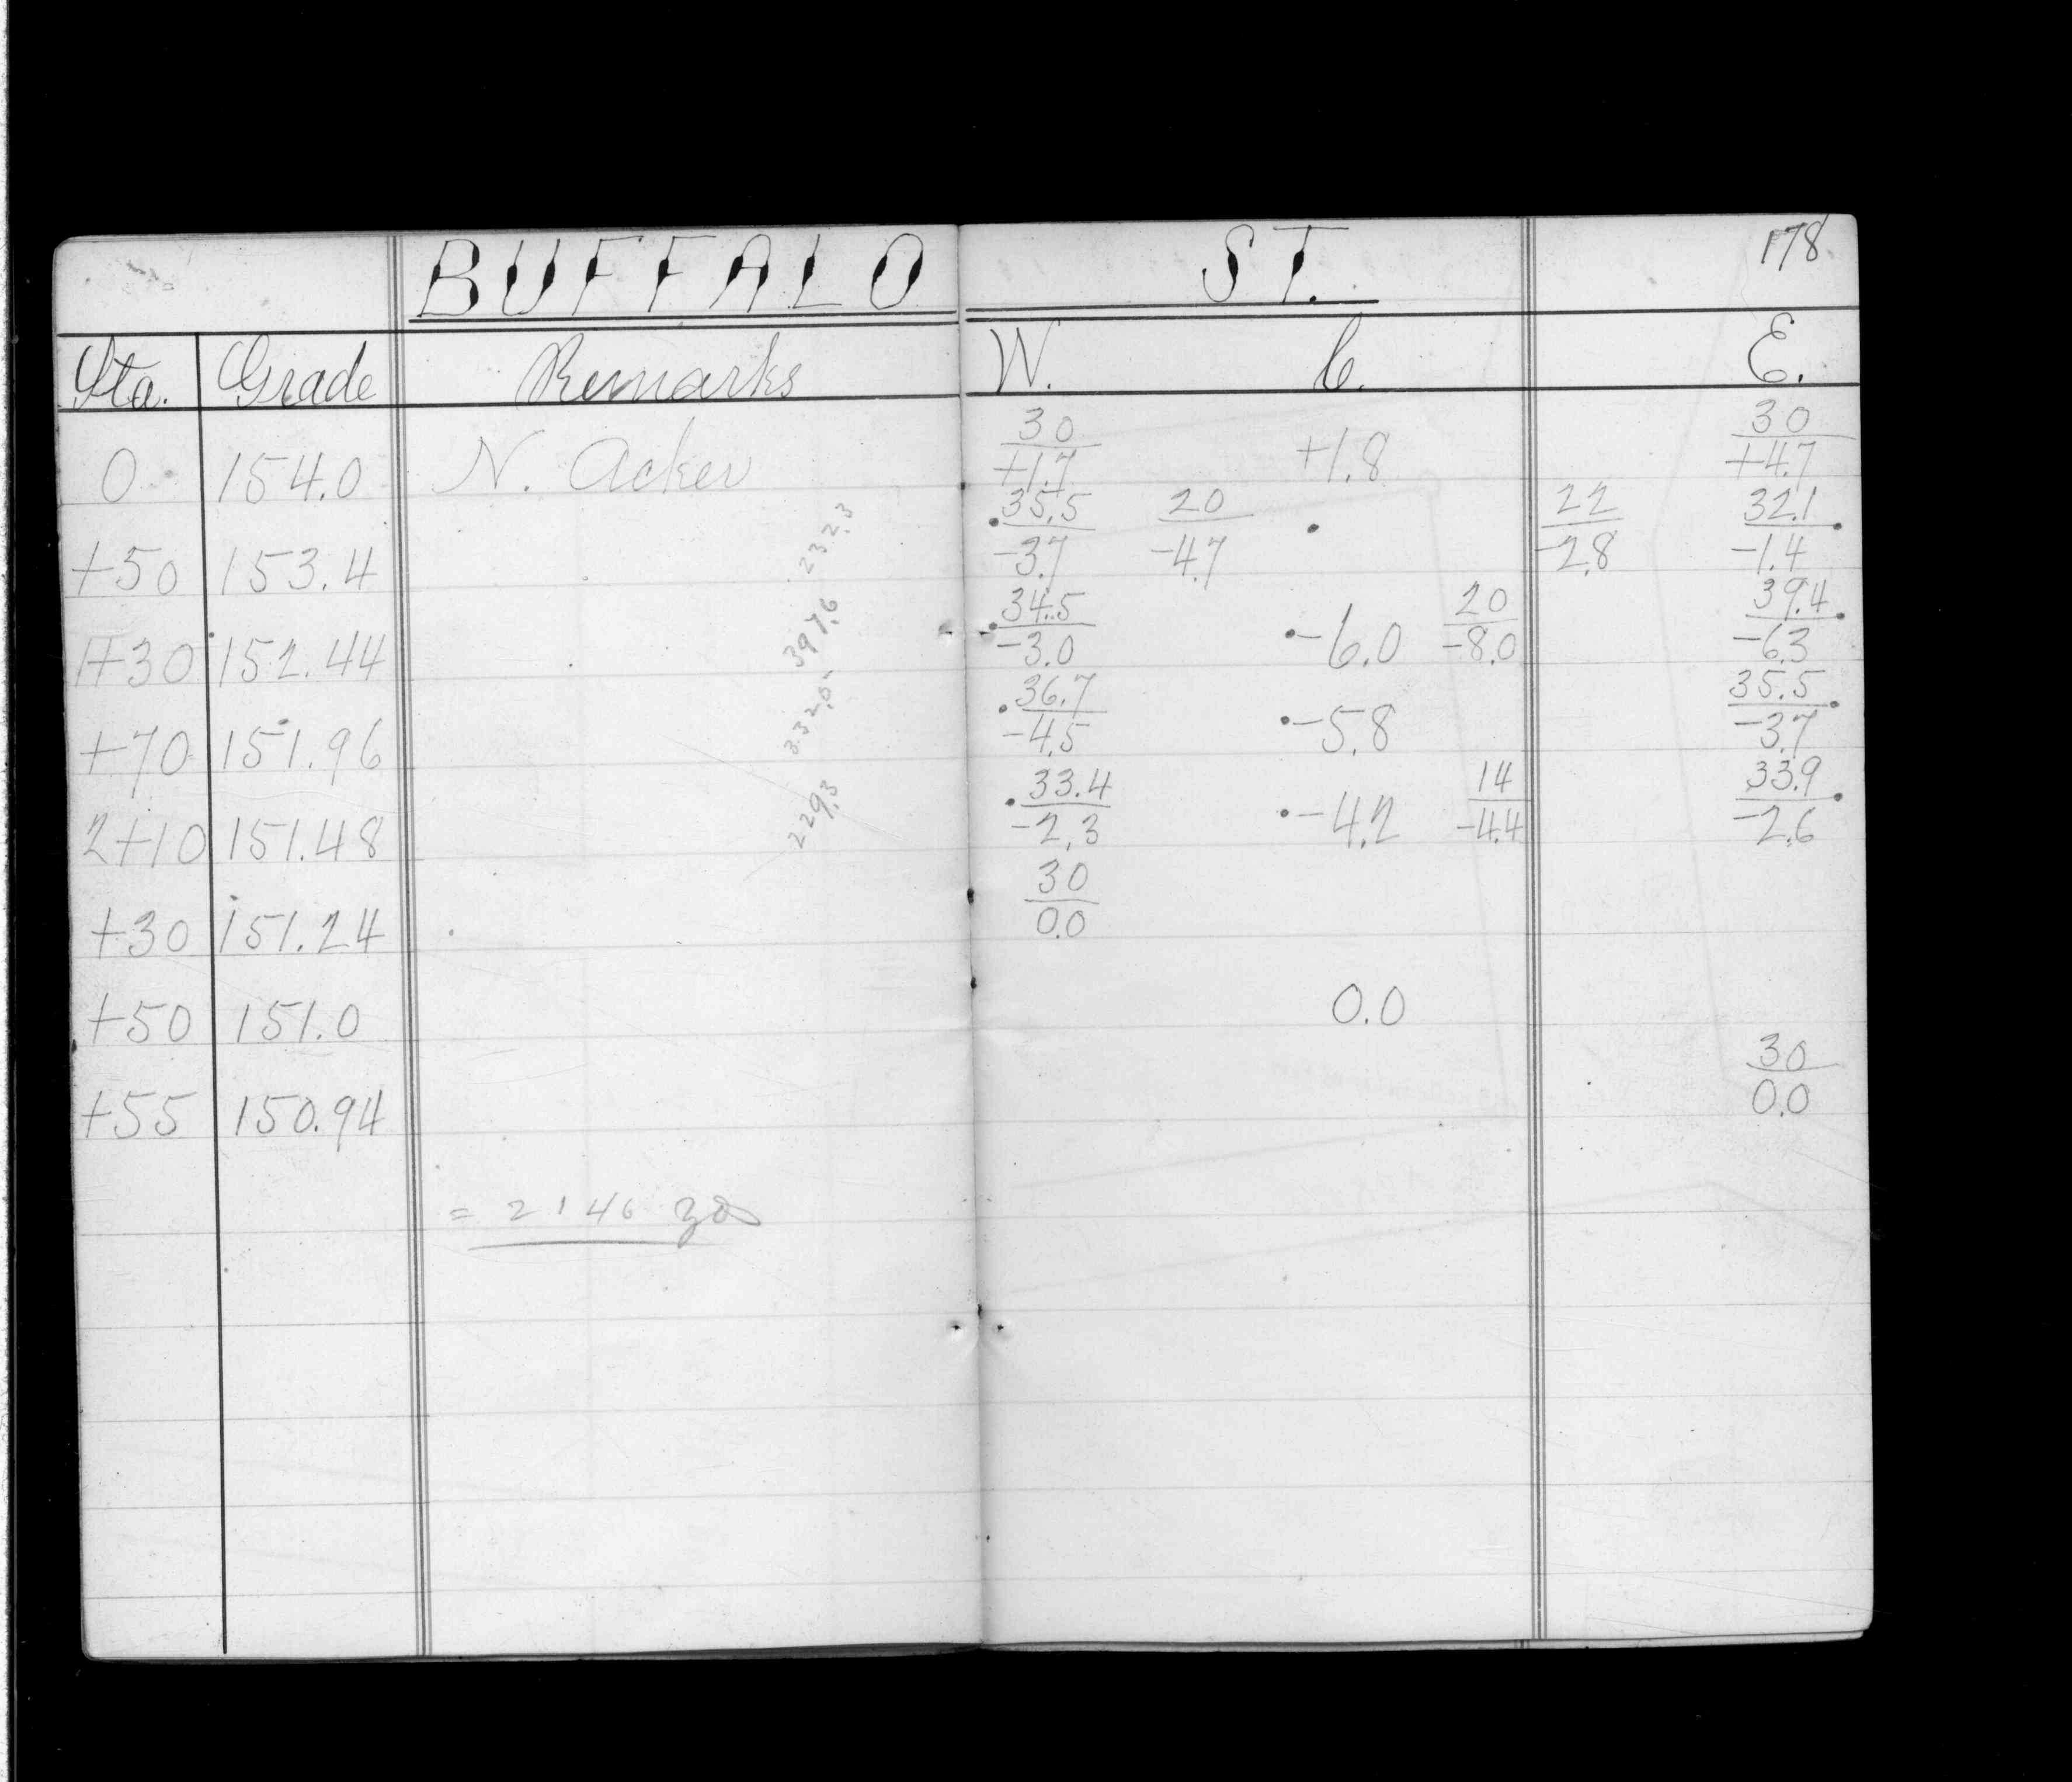 BUFFALO ST. 178
Sta. Grade Remarks W. C. E.
30 30
0 154.0 N. Acker +1.7 +1.8 +4.7
35.5 20 22 32.1
+50 153.4 -3.7 -4.7 -2.8 -1.4
34.5 20 39.4
1+30 152.44 -3.0 -6.0 -8.0 -6.3
36.7 35.5
+70 151.96 -4.5 -5.8 -3.7
33.4 14 33.9
2+10 151.48 -2.3 -4.2 -4.4 -2.6
30
+30 151.24 0.0
+50 151.0 0.0
30
+55 150.94 0.0
229.3 332.0 397.6 232.3
= 2146